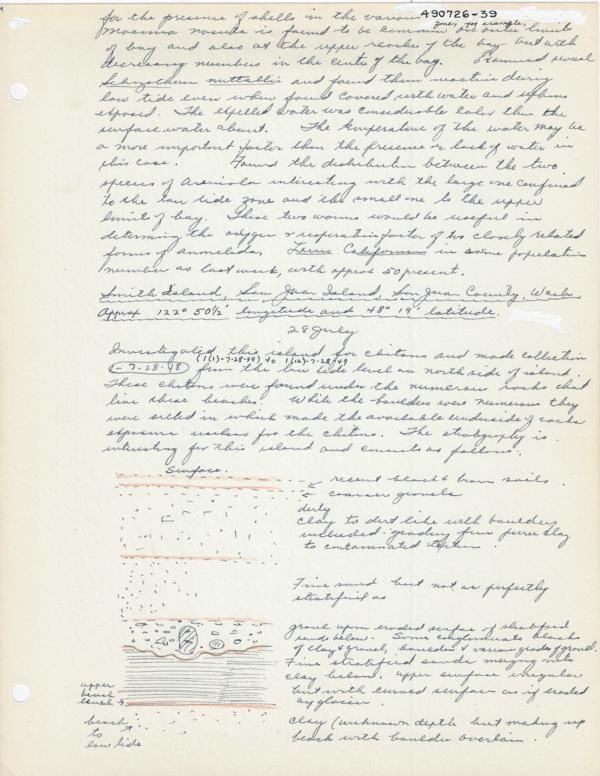 490726-39
for the presence of shells in the various zones, for example,
Macoma nasuta is found to be common on outer limits
of bay and also at the upper reaches of the bay but with
decreasing numbers in the center of the bay. Examined several
Schizothaerus nuttallii and found them inactive during
low tide even when found covered with water and siphons
exposed. The expelled water was considerable colder than the
surface water about. The temperature of the water may be
a more important factor than the presence or lack of water in
this case. Found the distribution between the two
species of Arenicola interesting with the large one confined
to the low tide zone and the small one to the upper
limits of bay. These two worms would be useful in
determining the oxygen & respiration factor of two closely related
forms of annelida. Larus Californicus in same population
number as last week, with approx 50 present.
Smith Island, San Juan Island, San Juan County, Wash
Approx 122° 50 1/2' longitude and 48° 19' latitude.
28 July
Investigated this island for chitons and made collection
(1(1)-7-28-49) to 1(12)-7-28-49
-7-28-48 from the low tide level on north side of island.
These chitons were found under the numerous rocks that
line these beaches. While the boulders were numerous they
were silted in which made the available underside of rocks
exposure useless for the chitons. The stratigraphy is
interesting for this island and consists as follows.
Surface.
recent black & brown soils.
coarser gravels
clay to dirt like with boulders
included. grading from pure clay
to contaminated
Fine sand but not as perfectly
stratified as
gravel upon eroded surface of stratified
sands below. Some conglomerate blocks
of clay & gravel, boulders & various grades of gravel.
Fine stratified sands merging into
clay below. upper surface irregular
but with curved surface as if eroded
by glacier
upper
beach
level
clay (unknown depth but making up
beach with boulder overlain.
beach
to
low tide